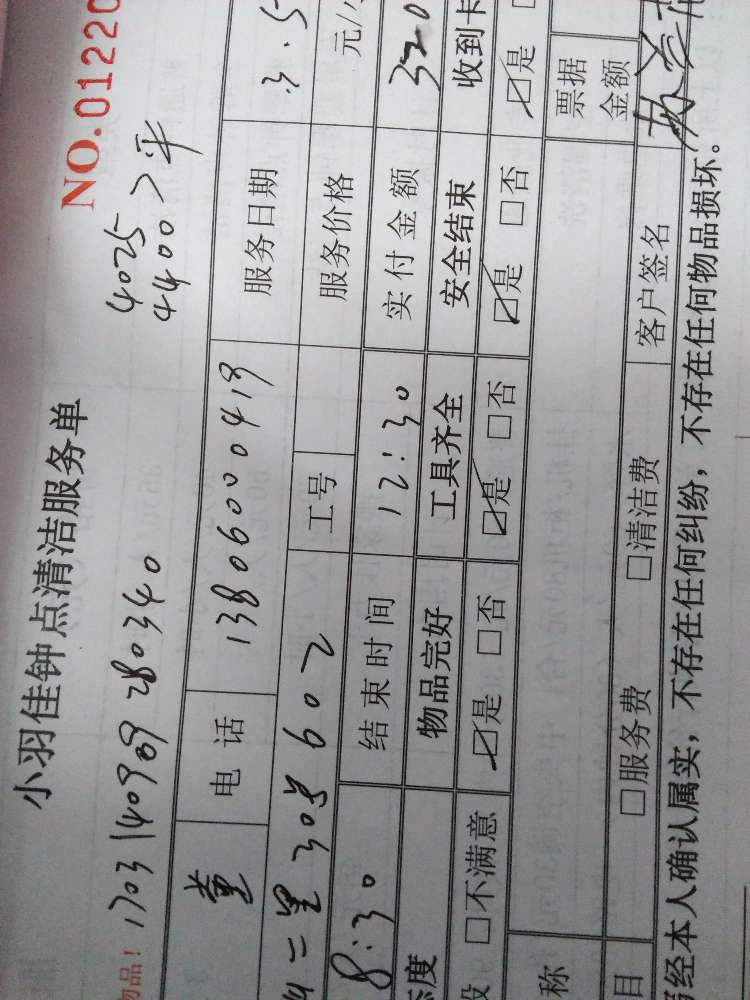 小羽佳钟点清洁服务单
NO.01220
物品! 1703140969280340 4025
4400 >平
董 电话 13806000419 服务日期 3.5
二里305 602 工号 服务价格 元/
8:30 结束时间 12:30 实付金额 320
态度 物品完好 工具齐全 安全结束 收到卡
□不满意 ☑是 □否 ☑是 □否 ☑是 □否 ☑是
称 票据
金额
目 □服务费 □清洁费 客户签名
经本人确认属实，不存在任何纠纷，不存在任何物品损坏。